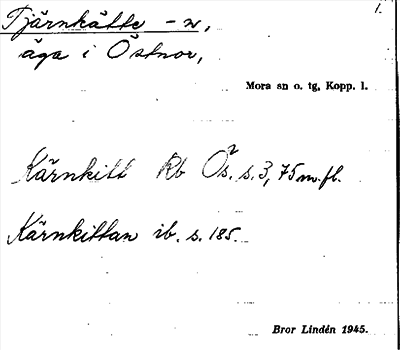 1.
Tjärnkätte -n,
äga i Östnor,
Mora sn o. tg, Kopp. l.
Kärnkitt Rb Ös². s. 3, 75 m. fl.
Kärnkittan ib. s. 185.
Bror Lindén 1945.